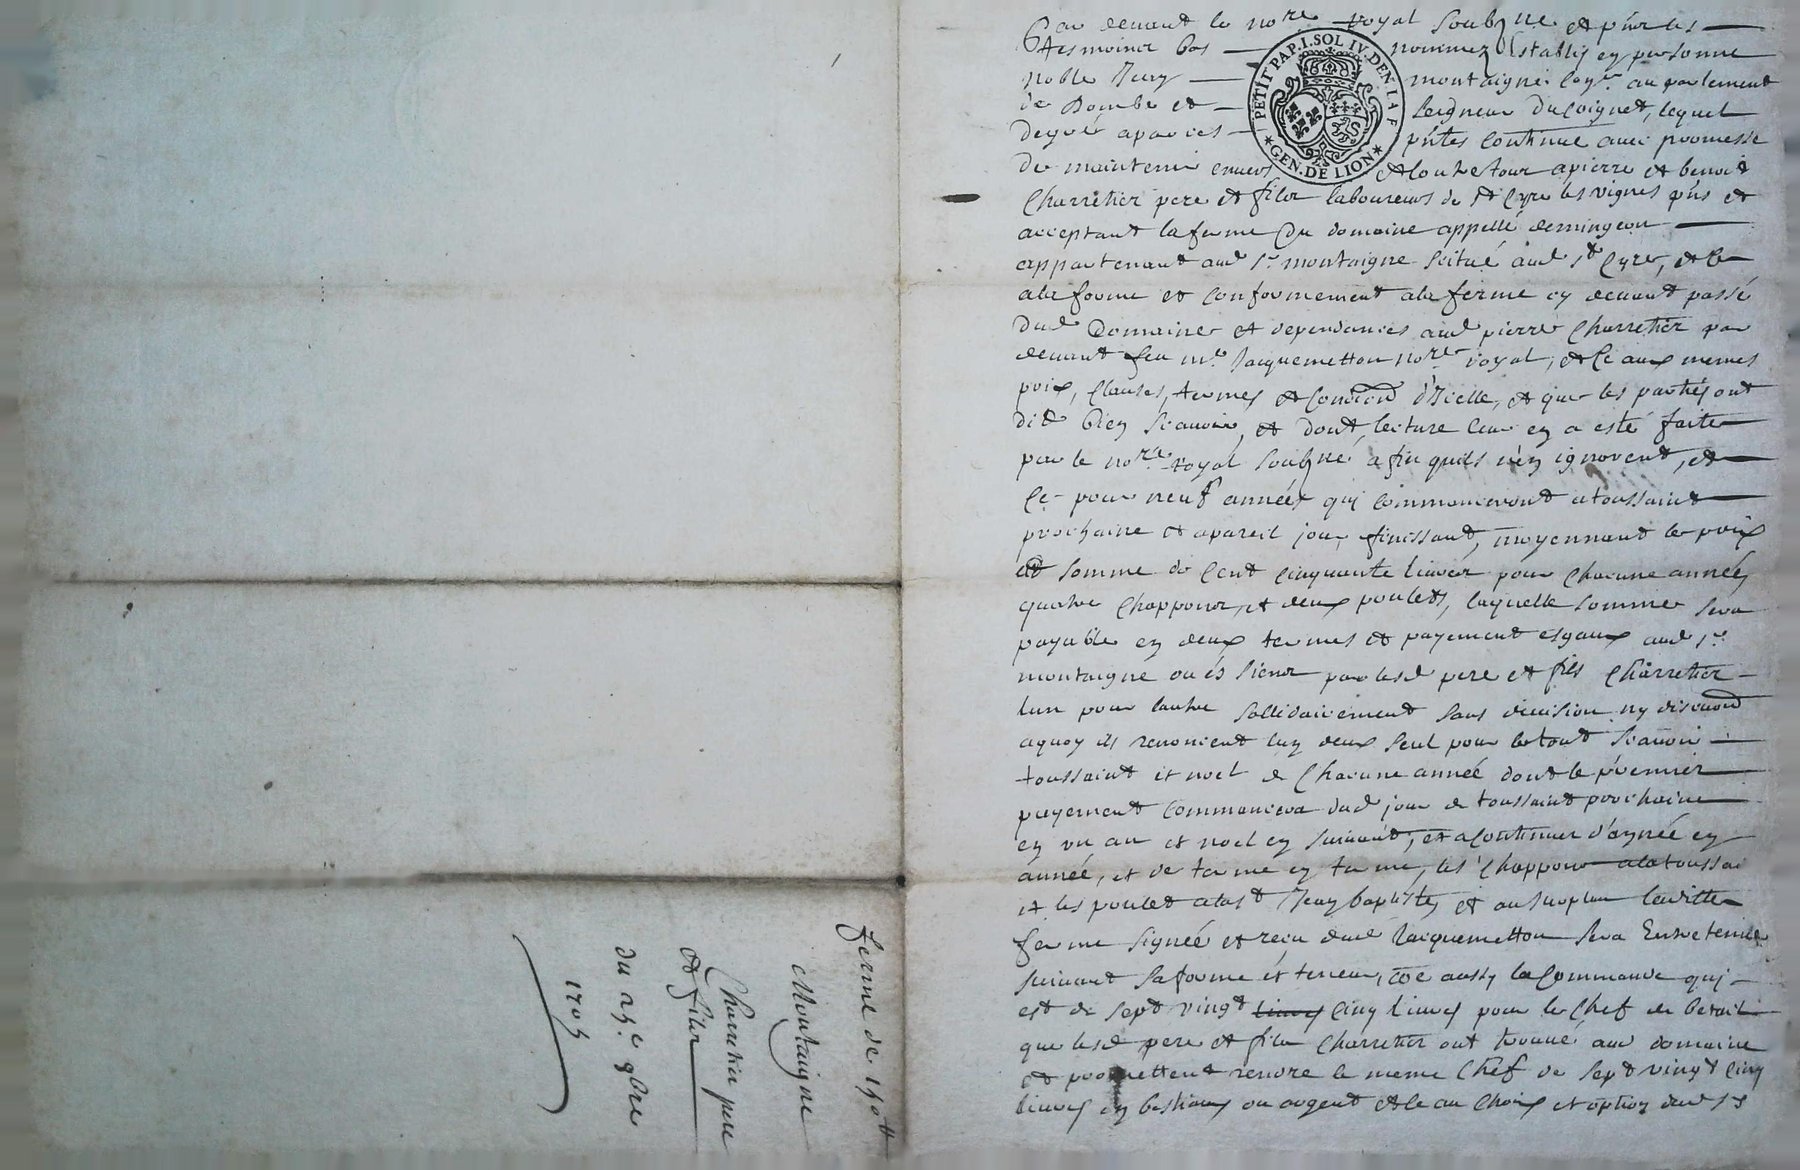 Par devant le no.re royal soubz.né et p̄ntes
tesmoins bas nommez Establis en personne
noble Jean montaigne Con.r au parlement
de Dombe et Seigneur du Coignet, lequel
de gré a p̄ntes continue avec promesse
de maintenir envers et contre tous a pierre et benoit
Charretier pere et filz laboureurs de st Cyre les vignes p̄ns et
acceptant la ferme du domaine appellé demingeon
appartenant aud sr montaigne scitué aud st Cyre, et ce
a la forme et conformement a la ferme cy devant passé
dud Domaine et dependances aud pierre Charretier par
devant feu me Jacquemetton no.re royal, et ce aux memes
prix, clauses, termes et condi͠on d'Icelle, et que les parties ont
dit bien scavoir, et dont lecture leur en a esté faite
par le no.re royal soubz.né afin quils n'en ignorent, et
ce pour neuf années qui commanceront a toussaint
prochaine et a pareil jour finissant, moyennant le prix
et somme de cent cinquante livres pour chacune années
quatre chappons, et deux poulets, laquelle somme sera
payable en deux termes et payement esgaux aud sr
montaigne ou és siens par lesd pere et fils Charretier
lun pour lautre sollidairement sans division ny discu͠on
a quoy ils renoncent lun deux seul pour le tout scavoir
toussaint et noel de chacune année dont le premier
payement commancera dud jour de toussaint prochaine
en un an et noel en suivant, et a continuer d'année en
année, et de terme en terme, les chappons a la toussai
et les poulet a la st Jean baptiste, et au surplus lauditte
ferme signée et receu dud Jacquemetton sera Entretenue
suivant sa forme et teneur, coe aussy la Commande qui
est de sept vingt livres cinq livres pour le chef de betail
que lesd pere et filz Charretier ont trouvé aud domaine
et promettent rendre le meme chef de sept vingt cinq
livres en bestiaux ou argent et ce au choix et option dud sr
PETIT PAP. I. SOL IV. DEN. LA F.
GEN. DE LION
ferme de 150 tt
Montaigne
Charretier pere
et filz
du 25.e 9bre
1705